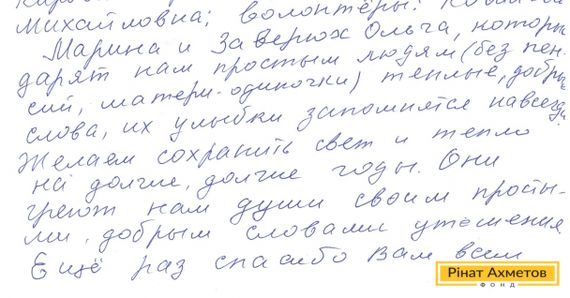 Михайловна; волонтёры:
Марина и Заверюх Ольга, которы
дарят нам простым людям (без пен-
сий, матери-одиночки) теплые, добры
слова, их улыбки запомнятся навсегда
Желаем сохранить свет и тепло
на долгие, долгие годы. Они
греют нам души своим просты-
ми, добрым словами утешения
Ещё раз спасибо Вам всем
Рінат Ахметов
ФОНД